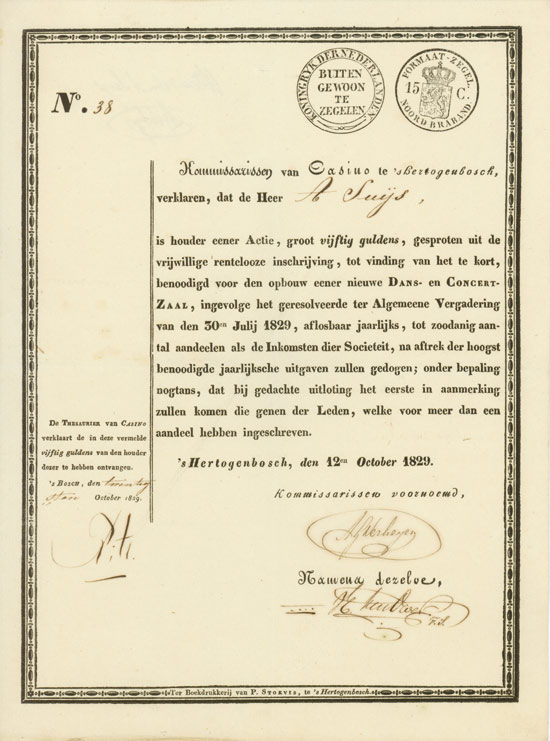 No. 38
KONINGRYK DER NEDERLANDEN
BUITEN
GEWOON
TE
ZEGELEN
FORMAAT-ZEGEL
15 C.
NOORD BRABAND
Kommissarissen van Casino te 'sHertogenbosch,
verklaren, dat de Heer A Suijs,
is houder eener Actie, groot vijftig guldens, gesproten uit de
vrijwillige rentelooze inschrijving, tot vinding van het te kort,
benoodigd voor den opbouw eener nieuwe DANS- en CONCERT-
ZAAL, ingevolge het geresolveerde ter Algemeene Vergadering
van den 30en Julij 1829, aflosbaar jaarlijks, tot zoodanig aan-
tal aandeelen als de Inkomsten dier Societeit, na aftrek der hoogst
benoodigde jaarlijksche uitgaven zullen gedogen; onder bepaling
nogtans, dat bij gedachte uitloting het eerste in aanmerking
zullen komen die genen der Leden, welke voor meer dan een
aandeel hebben ingeschreven.
's Hertogenbosch, den 12en October 1829.
Kommissarissen voornoemd,
Namens dezelve,
DE THESAURIER VAN CASINO
verklaart de in deze vermelde
vijftig guldens van den houder
dezer te hebben ontvangen.
's BOSCH, den twintig
sten October 1829.
Ter Boekdrukkerij van P. STOKVIS, te 's Hertogenbosch.